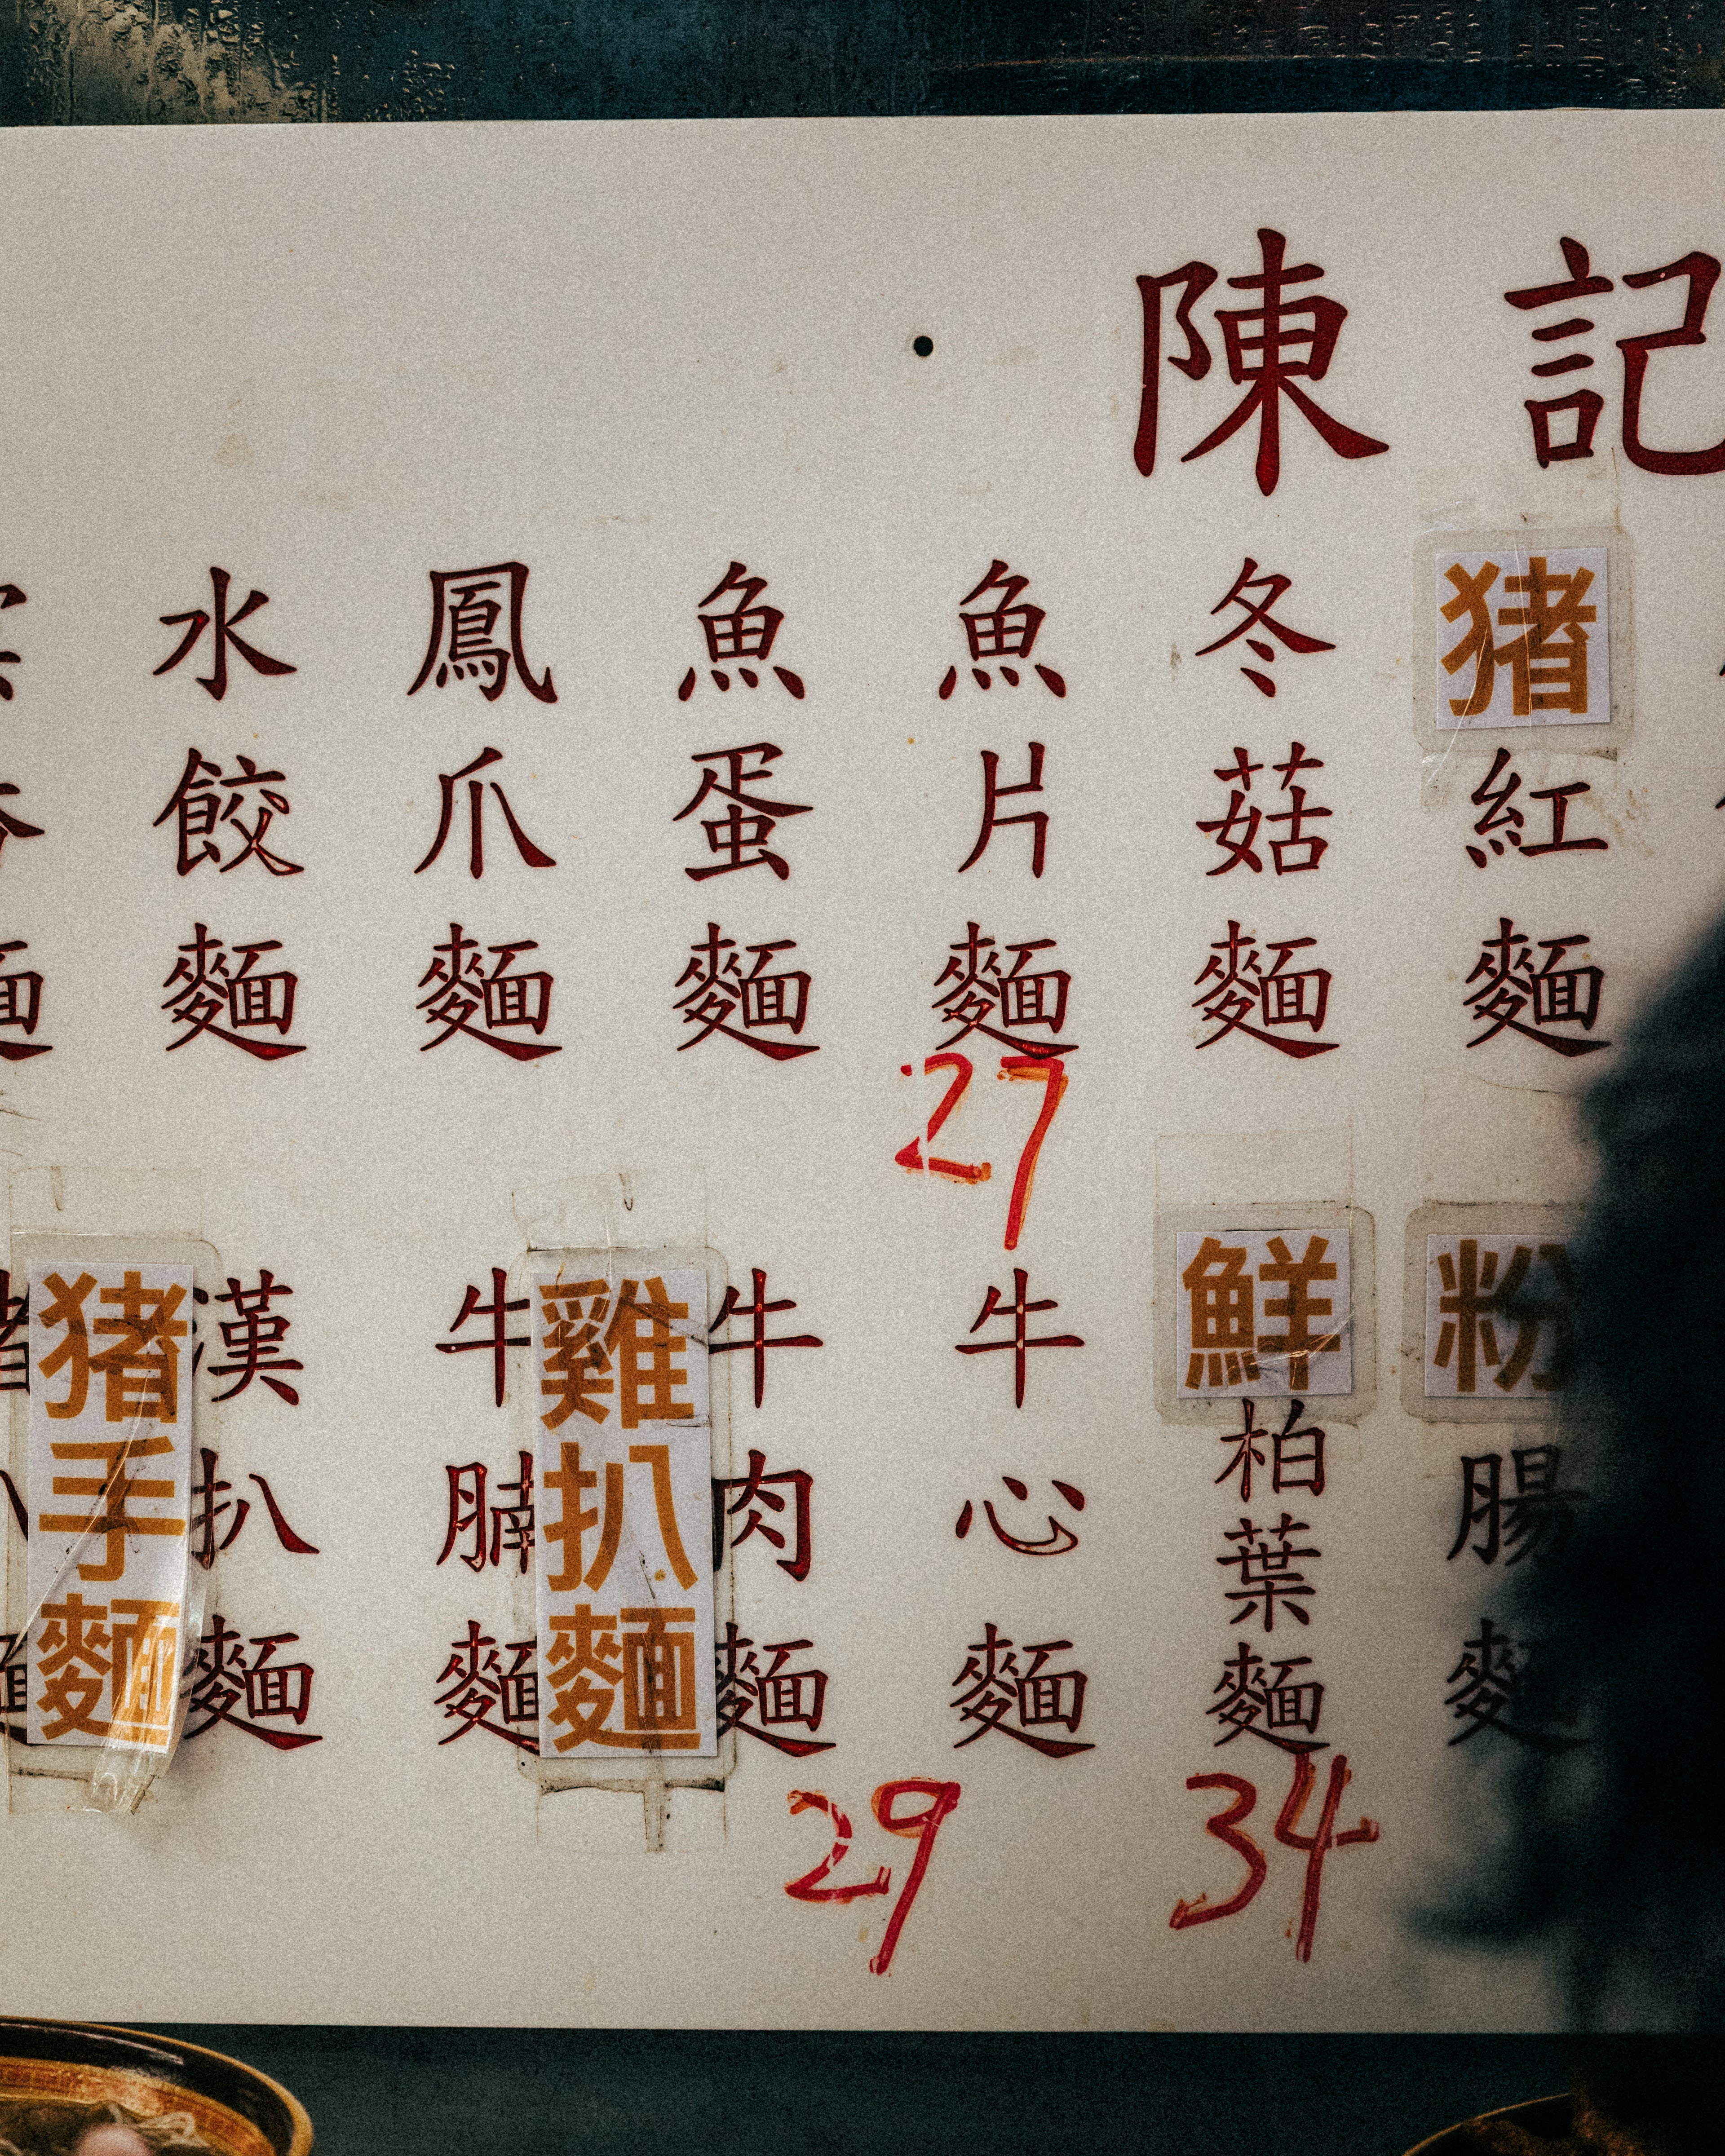 陳記
猪紅麵
冬菇麵
魚片麵
27
魚蛋麵
鳳爪麵
水餃麵
粉腸麵
鮮柏葉麵
34
牛心麵
牛肉麵
29
雞扒麵
牛腩麵
漢扒麵
猪手麵